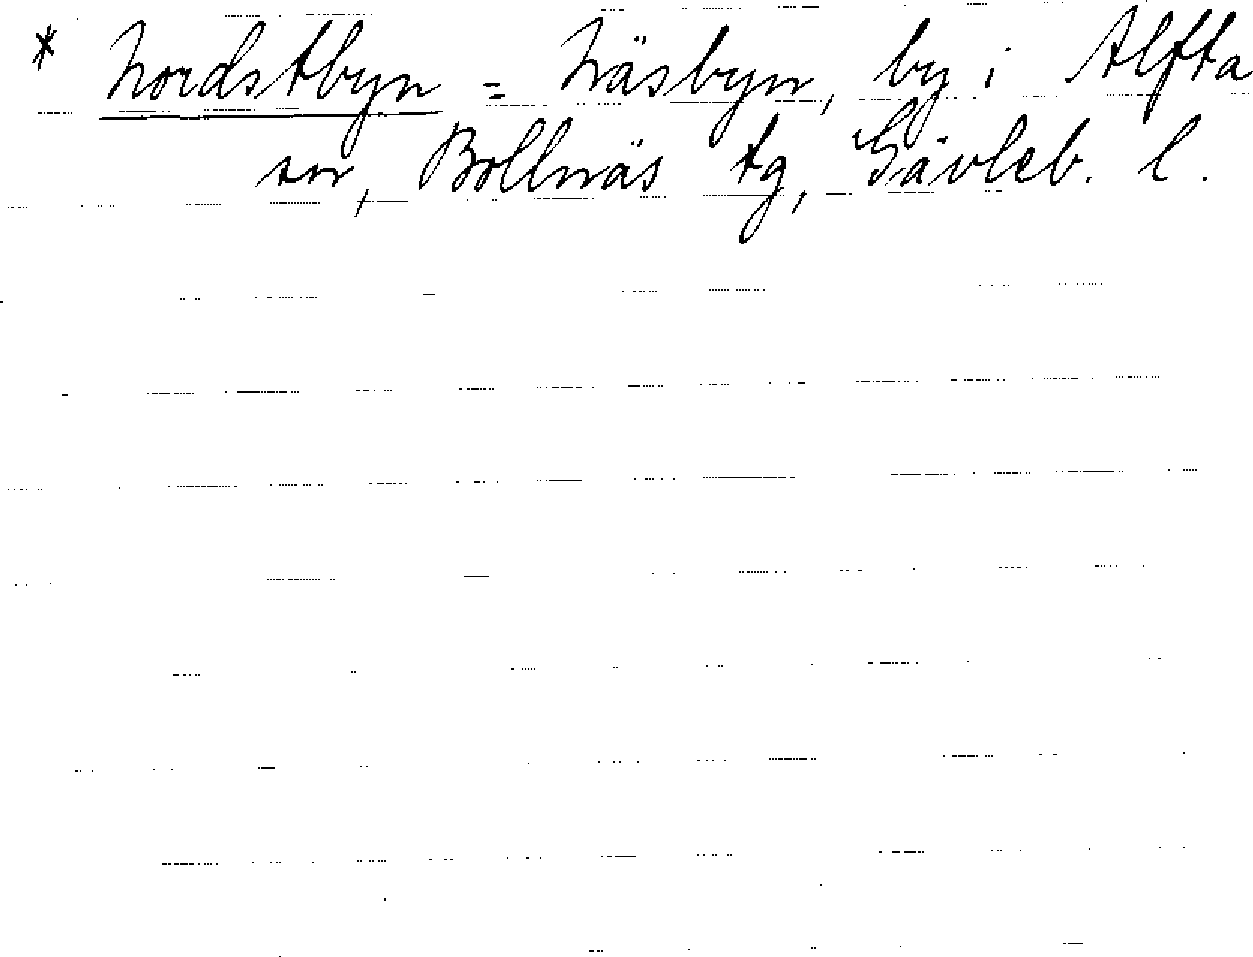 * Nordstbyn = Näsbyn, by i Alfta
sn, Bollnäs tg, Gävleb. l.